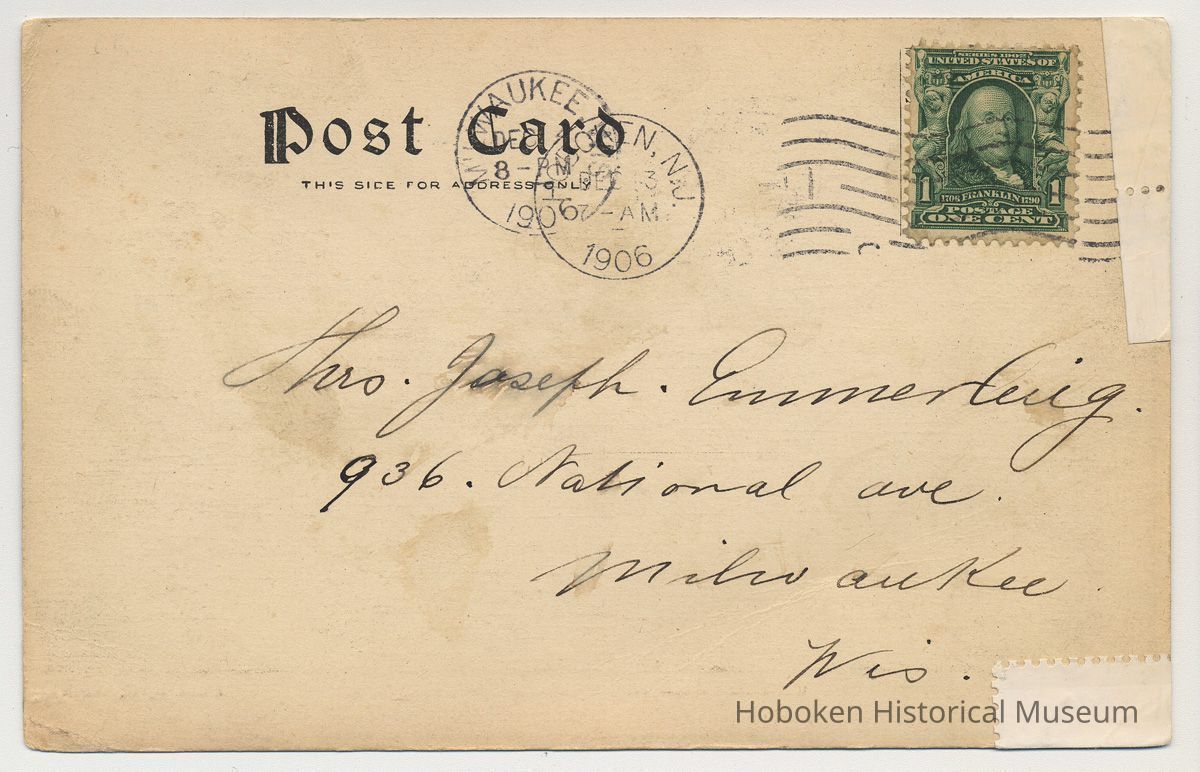 Post Card
THIS SIDE FOR ADDRESS ONLY
MILWAUKEE
DEC
8 - PM
1906
HOBOKEN, N.J.
DEC 13
7 - AM
1906
SERIES 1902
UNITED STATES OF
AMERICA
1 1
1706 FRANKLIN 1790
POSTAGE
ONE CENT
Mrs. Joseph. Emmerling.
936. National ave.
Milwaukee
Wis.
Hoboken Historical Museum